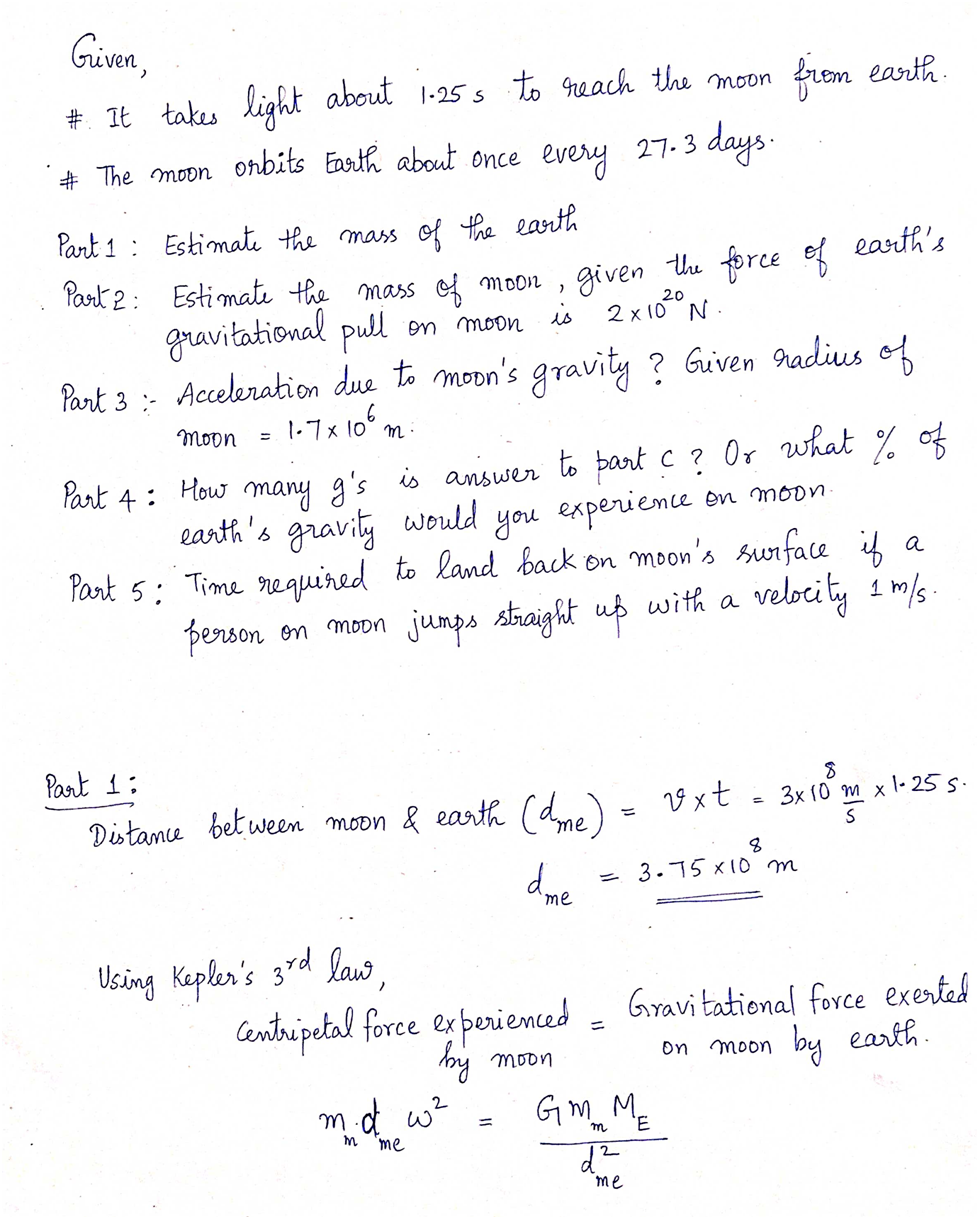 Given,
# It takes light about 1.25 s to reach the moon from earth.
# The moon orbits Earth about once every 27.3 days.
Part 1 : Estimate the mass of the earth
Part 2 : Estimate the mass of moon, given the force of earth's
gravitational pull on moon is 2 x 10^20 N.
Part 3 :- Acceleration due to moon's gravity ? Given radius of
moon = 1.7 x 10^6 m.
Part 4 : How many g's is answer to part c ? Or what % of
earth's gravity would you experience on moon.
Part 5 : Time required to land back on moon's surface if a
person on moon jumps straight up with a velocity 1 m/s.
Part 1 :
Distance between moon & earth (d_me) = v x t = 3x10^8 m/s x 1.25 s.
d_me = 3.75 x 10^8 m
Using Kepler's 3rd law,
Centripetal force experienced by moon = Gravitational force exerted on moon by earth.
m_m . d_me ω^2 = G m_m M_E / d_me^2